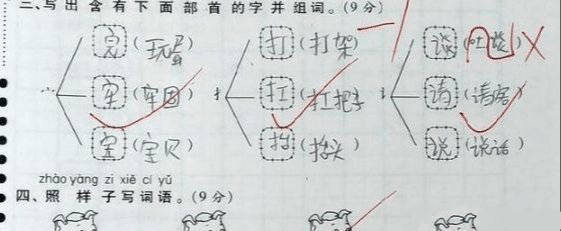 三、写出含有下面部首的字并组词。(9分)
完(玩蛋) 打(打架) 谈(吐谈)
宀 牢(牢固) 扌 扛(扛把子) 讠 请(请客)
宝(宝贝) 抬(抬头) 说(说话)
zhào yàng zi xiě cí yǔ
四、照样子写词语。(9分)